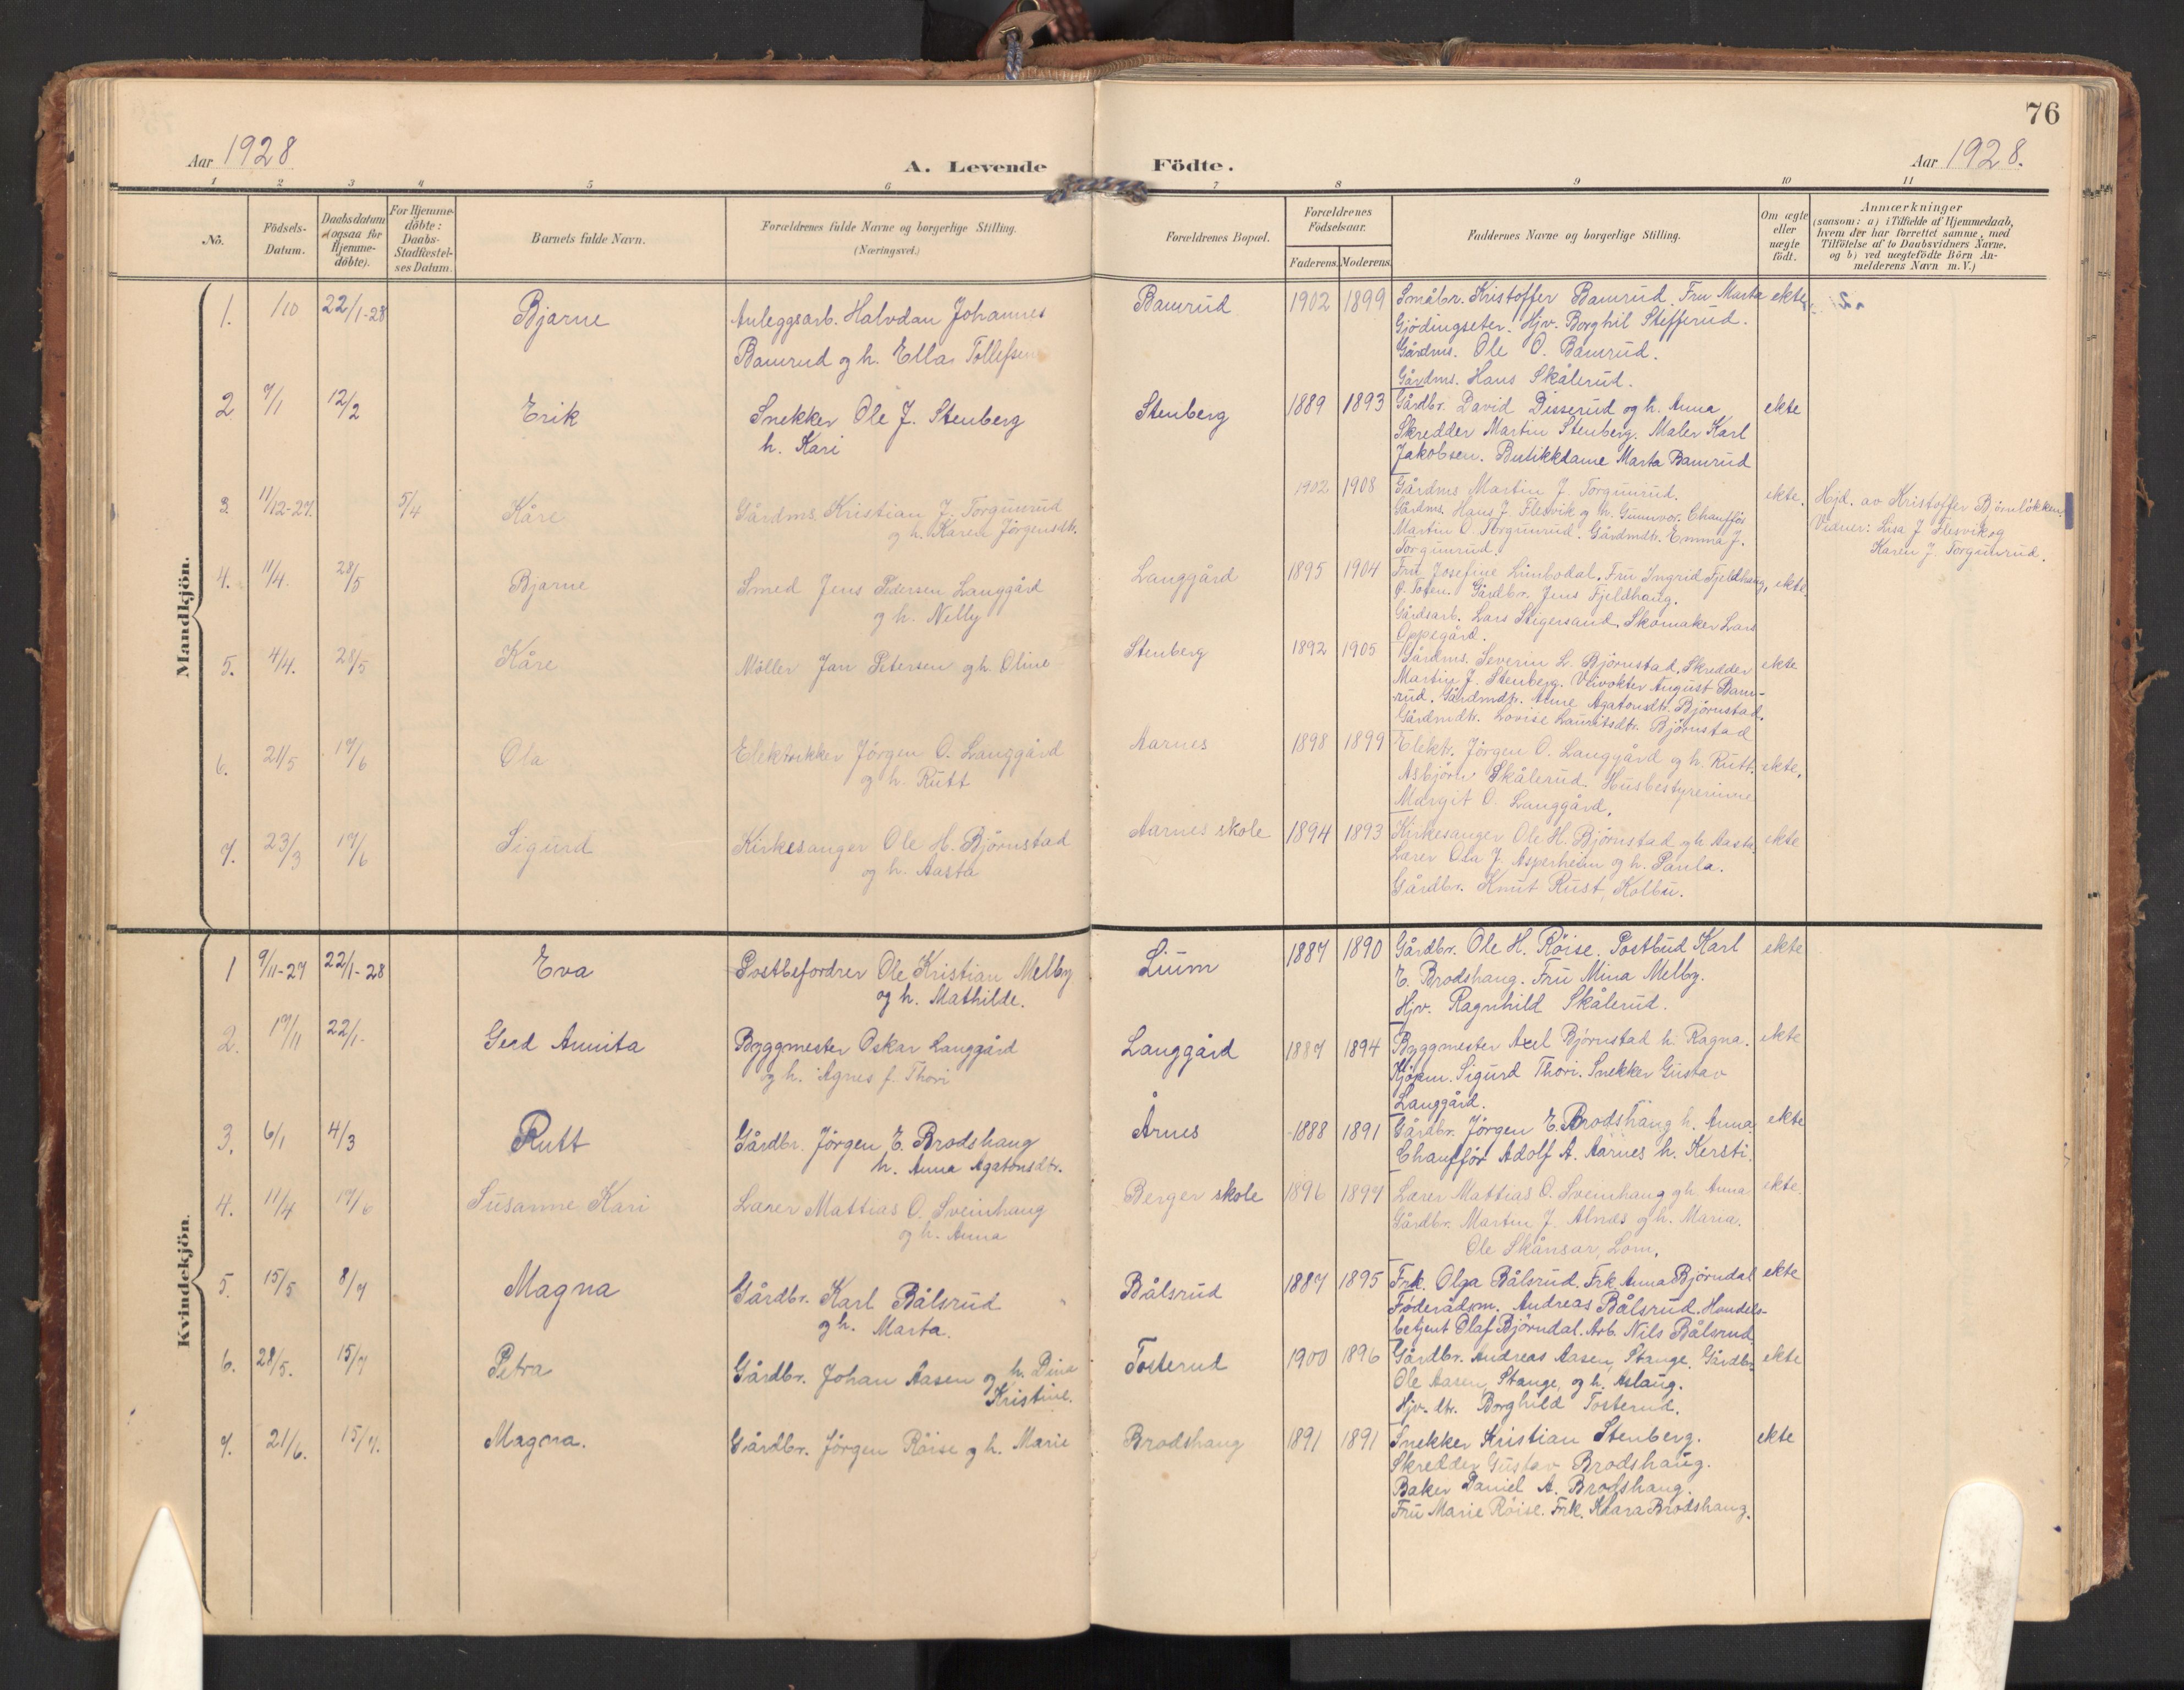 76
Aar 1928
A. Levende Födte.
Aar 1928.
1 2 3 4 5 6 7 8 9 10 11
No.
Födsels-
Datum.
Daabsdatum
(ogsaa for
Hjemme-
döbte).
For Hjemme-
döbte:
Daabs-
Stadfæstel-
ses Datum.
Barnets fulde Navn.
Forældrenes fulde Navne og borgerlige Stilling.
(Næringsvei.)
Forældrenes Bopæl.
Forældrenes
Födselsaar.
Faderens. Moderens.
Faddernes Navne og borgerlige Stilling.
Om ægte
eller
uægte
født.
Anmærkninger
(saasom: a) i Tilfælde af Hjemmedaab,
hvem der har forrettet samme, med
Tilföielse af to Daabsvidners Navne.
og b) ved uægtefödte Börn An-
melderens Navn m. V.)
Mandkjön.
1. 1/10 22/1-28 Bjarne Anleggsarb. Halvdan Johannes Bamrud 1902 1899 Småbr. Kristoffer Bamrud. Fru Marta ekte
Bamrud og h. Ella Tollefsen Gjödingseter. Hjv. Borghil Stefferud.
Gårdms. Ole O. Bamrud.
Gårdms. Hans Skålerud.
2 7/1 12/2 Erik Snekker Ole J. Stenberg Stenberg 1889 1893 Gårdbr. David Disserud og h. Anna ekte
h. Kari Skredder Martin Stenberg. Maler Karl
Jakobsen. Butikkdame Marta Bamrud
3. 11/12-27. 5/4 Kåre Gårdms. Kristian J. Torgunrud 1902 1908 Gårdms Martin J. Torgunrud. ekte. Hjd. av Kristoffer Björnlökken.
og h. Karen Jörgensdtr. Gårdms. Hans J. Flesvik og h. Gunnvor. Chaufför Vidner: Lisa J Flesvik og
Martin O. Torgunrud. Gårdmdtr. Emma J. Karen J. Torgunrud.
Torgunrud.
4. 11/4. 28/5 Bjarne Smed Jens Pedersen Langgård Langgård 1895 1904 Fru Josefine Limbodal. Fru Ingrid Fjeldhaug, ekte.
og h. Nelly Ö. Toten. Gårdbr. Jens Fjeldhaug.
Gårdsarb. Lars Stigersand. Skomaker Lars
Oppegård.
5. 4/4. 28/5 Kåre Möller Jan Petersen og h. Oline Stenberg 1892 1905 Gårdms. Severin L. Björnstad. Skredder ekte
Martin J. Stenberg. Veivokter August Bam-
rud. Gårdmdtr. Anne Agatonsdtr. Björnstad.
Gårdmdtr. Lovise Lauritsdtr. Björnstad
6. 21/5 17/6 Ola Elektrikker Jörgen O. Langgård Aarnes 1898 1899 Elektr. Jörgen O. Langgård og h. Rutt. ekte.
og h. Rutt Asbjörn Skålerud. Husbestyrerinne
Margit O. Langgård.
7. 23/3 17/6 Sigurd Kirkesanger Ole H. Björnstad Aarnes skole 1894 1893 Kirkesanger Ole H. Björnstad og h. Aasta. ekte
og h. Aasta Lærer Ola J. Asperheim og h. Paula.
Gårdbr. Knut Rust, Kolbu.
Kvindekjön.
1 9/11-27 22/1-28 Eva Postbefordrer Ole Kristian Melby Lium 1887 1890 Gårdbr. Ole H. Röise. Postbud Karl ekte
og h. Mathilde. E. Brodshaug. Fru Mina Melby.
Hjv. Ragnhild Skålerud.
2. 17/11 22/1- Gerd Annita Byggmester Oskar Langgård Langgård 1887 1894 Byggmester Axel Björnstad h. Ragna. ekte
og h. Agnes f. Thori Kjöpm. Sigurd Thori. Snekker Gustav
Langgård.
3. 6/1 4/3 Rutt Gårdbr. Jörgen E. Brodshaug Årnes 1888 1891 Gårdbr. Jörgen E. Brodshaug h. Anna. ekte
h. Anna Agatonsdtr. Chaufför Adolf A. Aarnes h. Kersti.
4. 11/4 17/6 Susanne Kari Lærer Mattias O. Sveinhaug Berger skole 1896 1897 Lærer Mattias O. Sveinhaug og h. Anna ekte.
og h. Anna Gårdbr. Martin J. Alnæs og h. Maria.
Ole Skånsar, Lom.
5. 15/5 8/7 Magna Gårdbr. Karl Bålsrud Bålsrud 1887 1895 Frk. Olga Bålsrud. Frk Anna Björndal ekte
og h. Marta. Föderådsm. Andreas Bålsrud. Handels-
betjent Olaf Björndal. Arb. Nils Bålsrud
6. 28/5. 15/7 Petra Gårdbr. Johan Aasen og h. Dina Tosterud 1900 1896 Gårdbr. Andreas Aasen, Stange. Gårdbr. ekte
Kristine. Ole Aasen, Stange, og h. Aslaug.
Hjv. dtr. Borghild Tosterud.
7. 21/6. 15/7. Magna. Gårdbr. Jörgen Röise og h. Marie Brodshaug 1891 1891 Snekker Kristian Stenberg. ekte
Skredder Gustav Brodshaug.
Baker Daniel A. Brodshaug.
Fru Marie Röise. Frk. Klara Brodshaug.